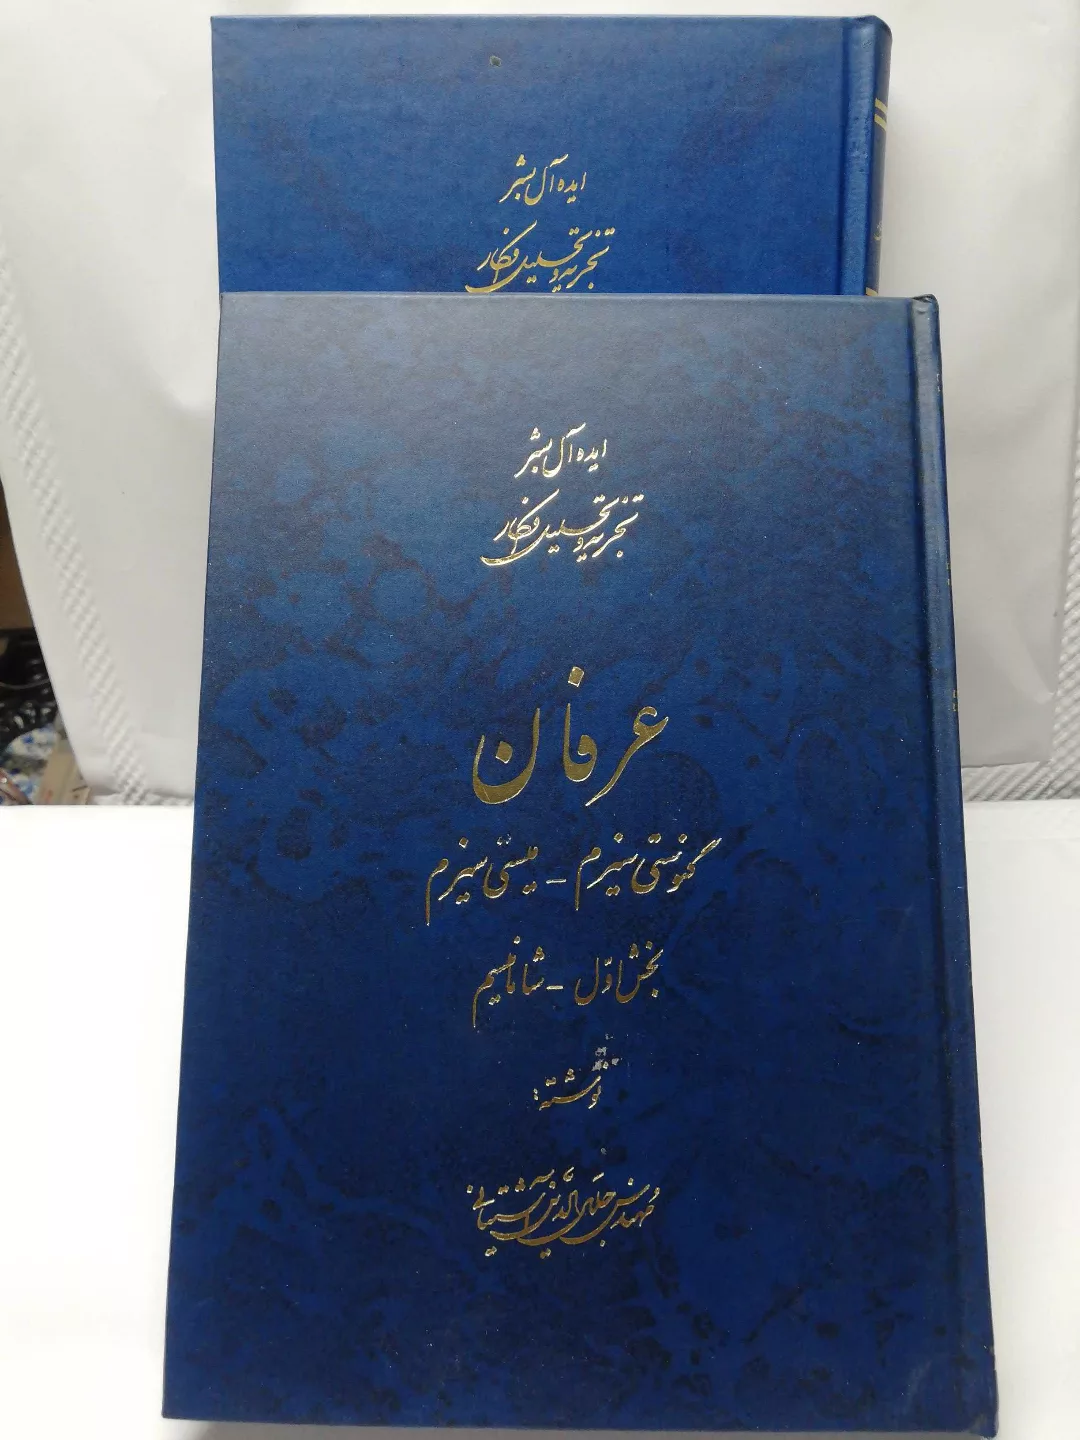 ایده آل بشر
تجزیه و تحلیل افکار
ایده آل بشر
تجزیه و تحلیل افکار
عرفان
گنوستی سیزم - میستی سیزم
بخش اوّل - شامانیسم
نوشته:
مهندس جلال الدّین آشتیانی